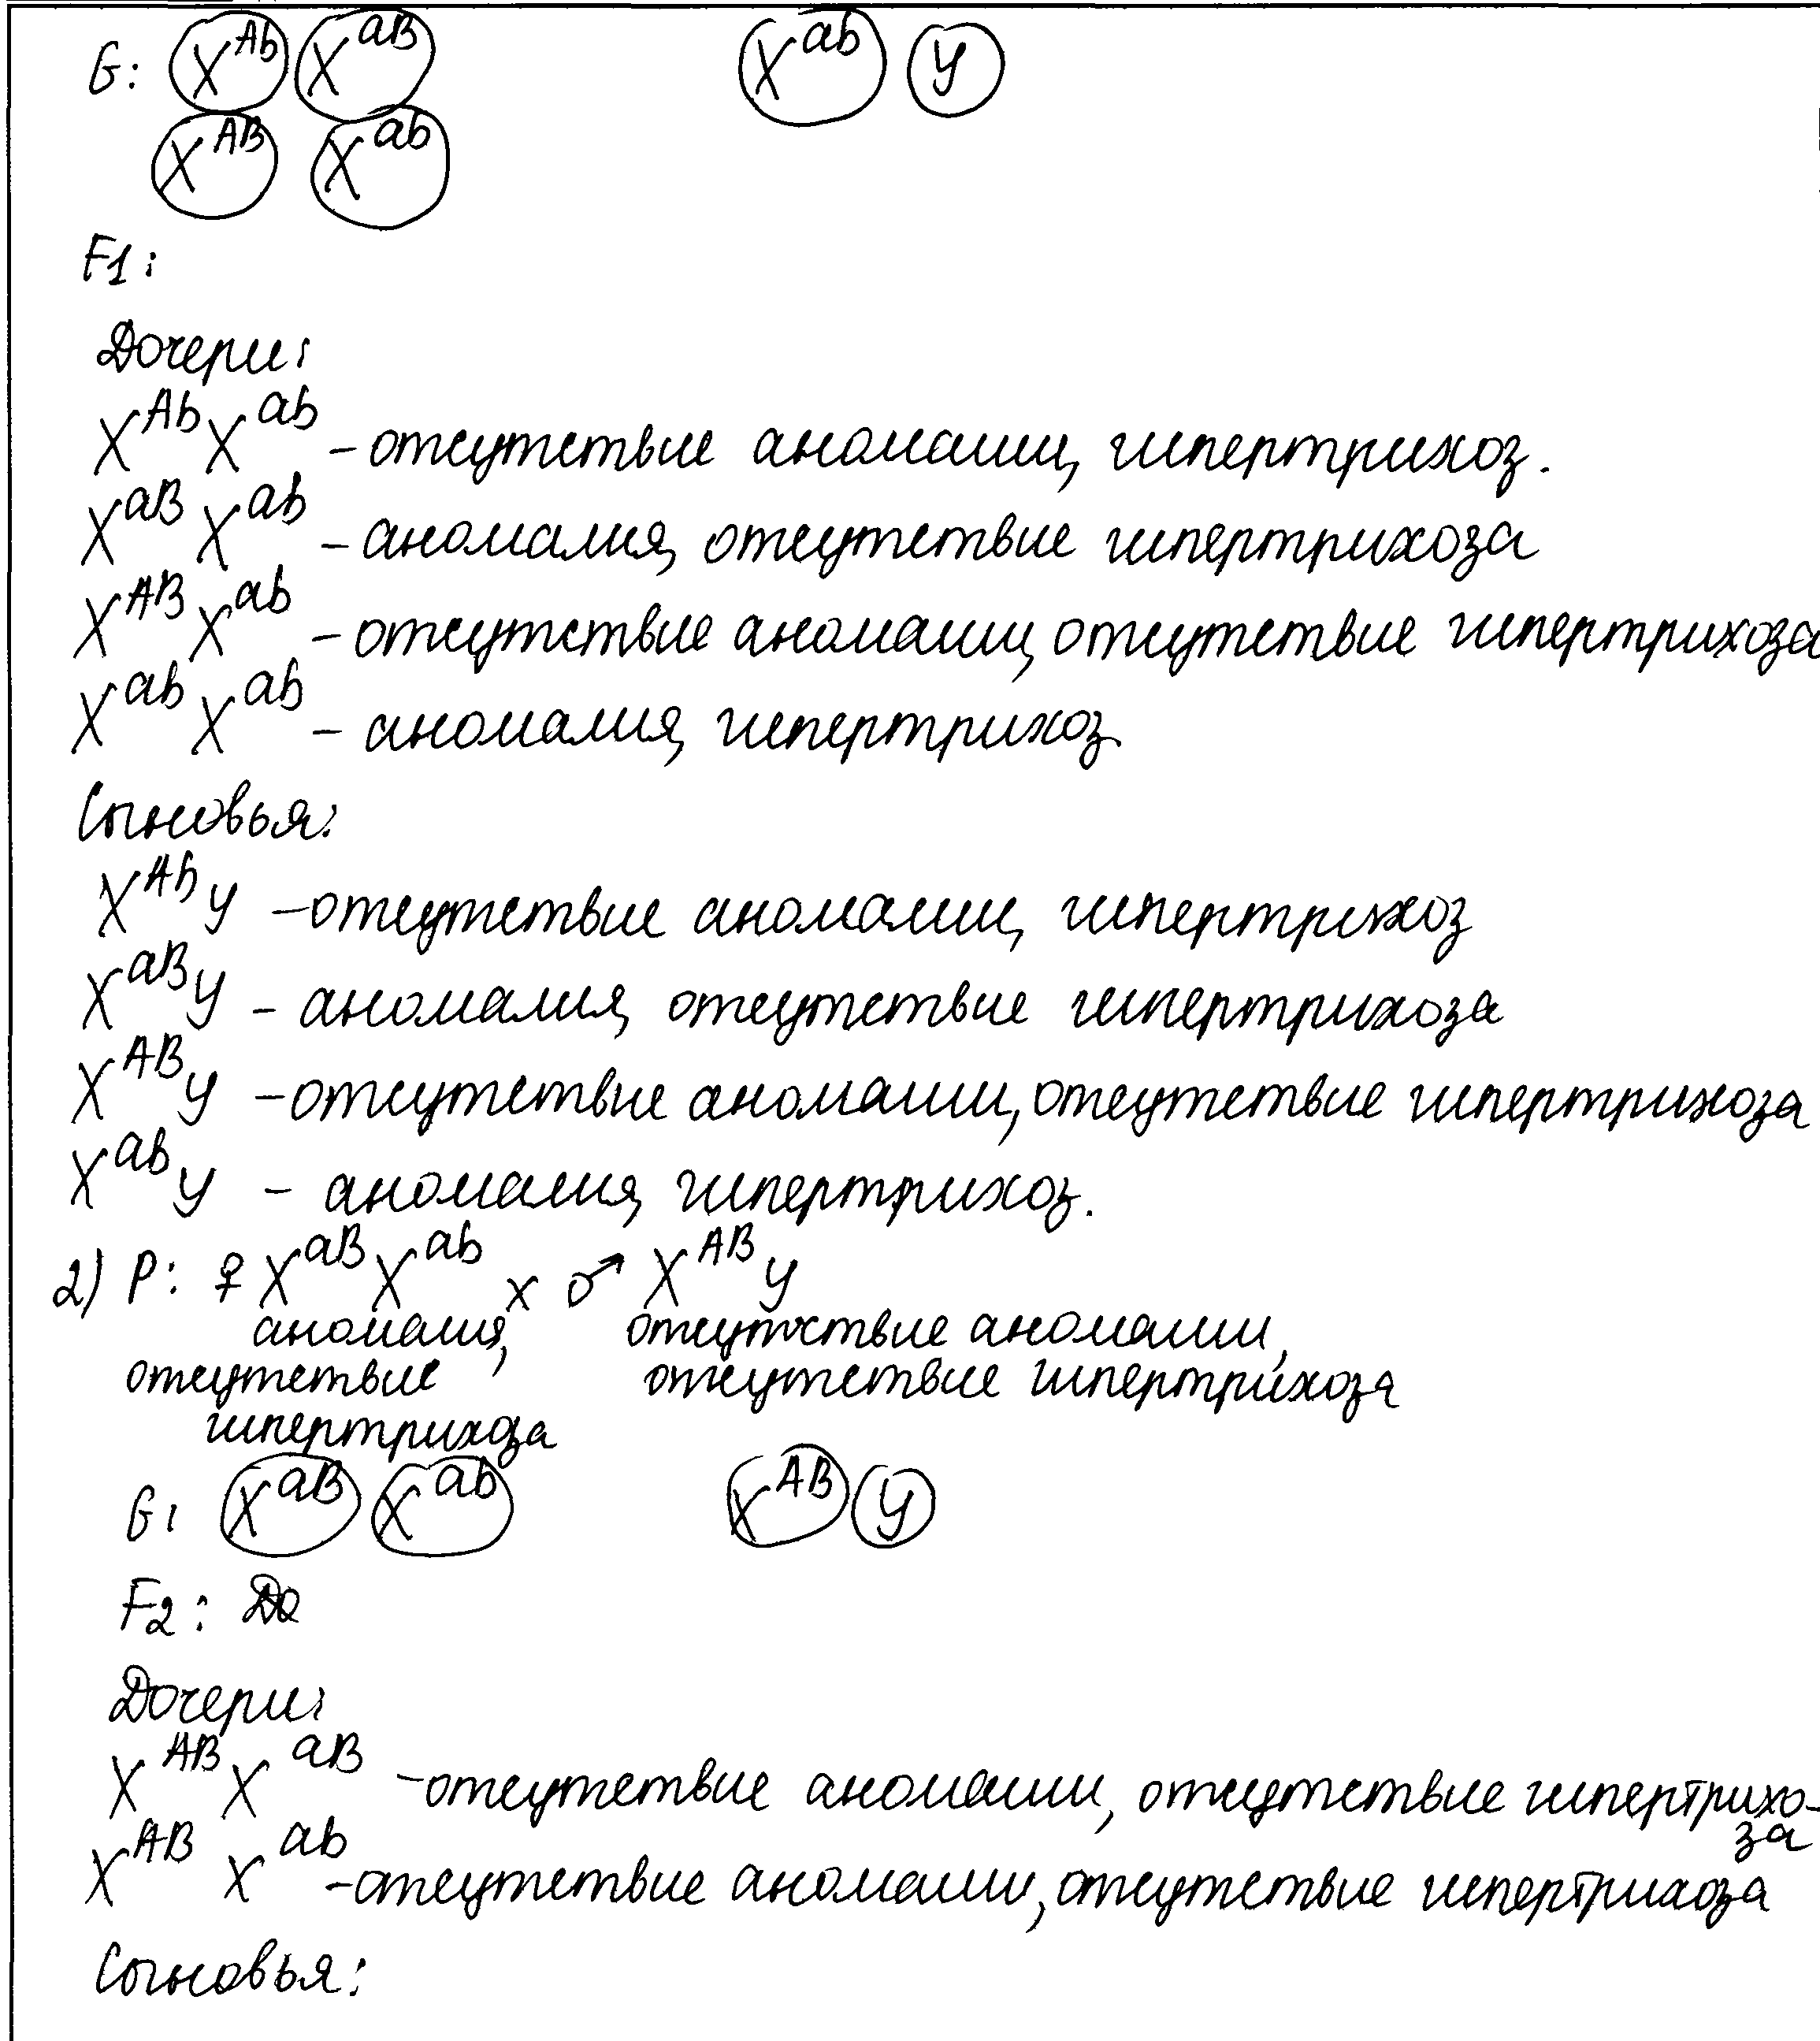 G: X^Ab X^aB X^ab У
X^AB X^ab
F1:
Дочери:
X^Ab X^ab – отсутствие аномалии, гипертрихоз.
X^aB X^ab – аномалия, отсутствие гипертрихоза
X^AB X^ab – отсутствие аномалии, отсутствие гипертрихоза
X^ab X^ab – аномалия, гипертрихоз.
Сыновья:
X^Ab У – отсутствие аномалии, гипертрихоз
X^aB У – аномалия, отсутствие гипертрихоза
X^AB У – отсутствие аномалии, отсутствие гипертрихоза
X^ab У – аномалия, гипертрихоз.
2) P: ♀ X^aB X^ab x ♂ X^AB У
аномалия, отсутствие аномалии,
отсутствие отсутствие гипертрихоза
гипертрихоза
G: X^aB X^ab X^AB У
F2: До
Дочери:
X^AB X^aB – отсутствие аномалии, отсутствие гипертрихо-
за
X^AB X^ab – отсутствие аномалии, отсутствие гипертрихоза
Сыновья: